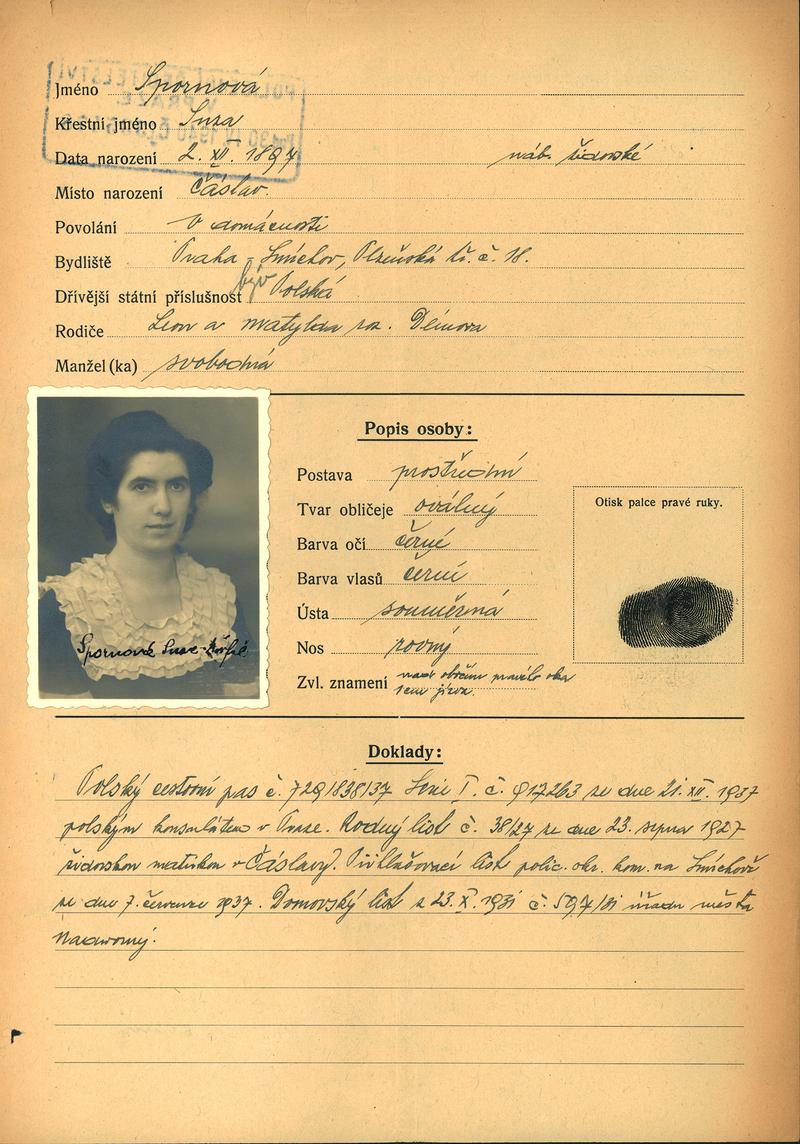 Jméno Spornová
Křestní jméno Suza
Data narození 2. XII. 1897 náb. židovské
Místo narození Čáslav.
Povolání v domácnosti
Bydliště Praha - Smíchov, Plzeňská tř. č. 18.
býv
Dřívější státní příslušnost Polská
Rodiče Leon a Matylda roz.
Manžel (ka) svobodná
Popis osoby:
Postava prostřední
Tvar obličeje oválný
Barva očí černé
Barva vlasů černé
Ústa souměrná
Nos rovný
Zvl. znamení nad obočím pravého oka
jizva.
Otisk palce pravé ruky.
Spornová Suza
Doklady:
Polský cestovní pas č. 729/838/37 Serie I. č. 912263 ze dne 21. XII. 1937
polským konsulátem v Praze. Rodný list č. 38/27 ze dne 23. srpna 1927
židovskou matrikou v Čáslavy. Přihlašovací list polic. okr. kom. na Smíchově
ze dne 7. července 1937. Domovský list z 23. X. 1931 č. 597/31 úřadu města
Nadworny.